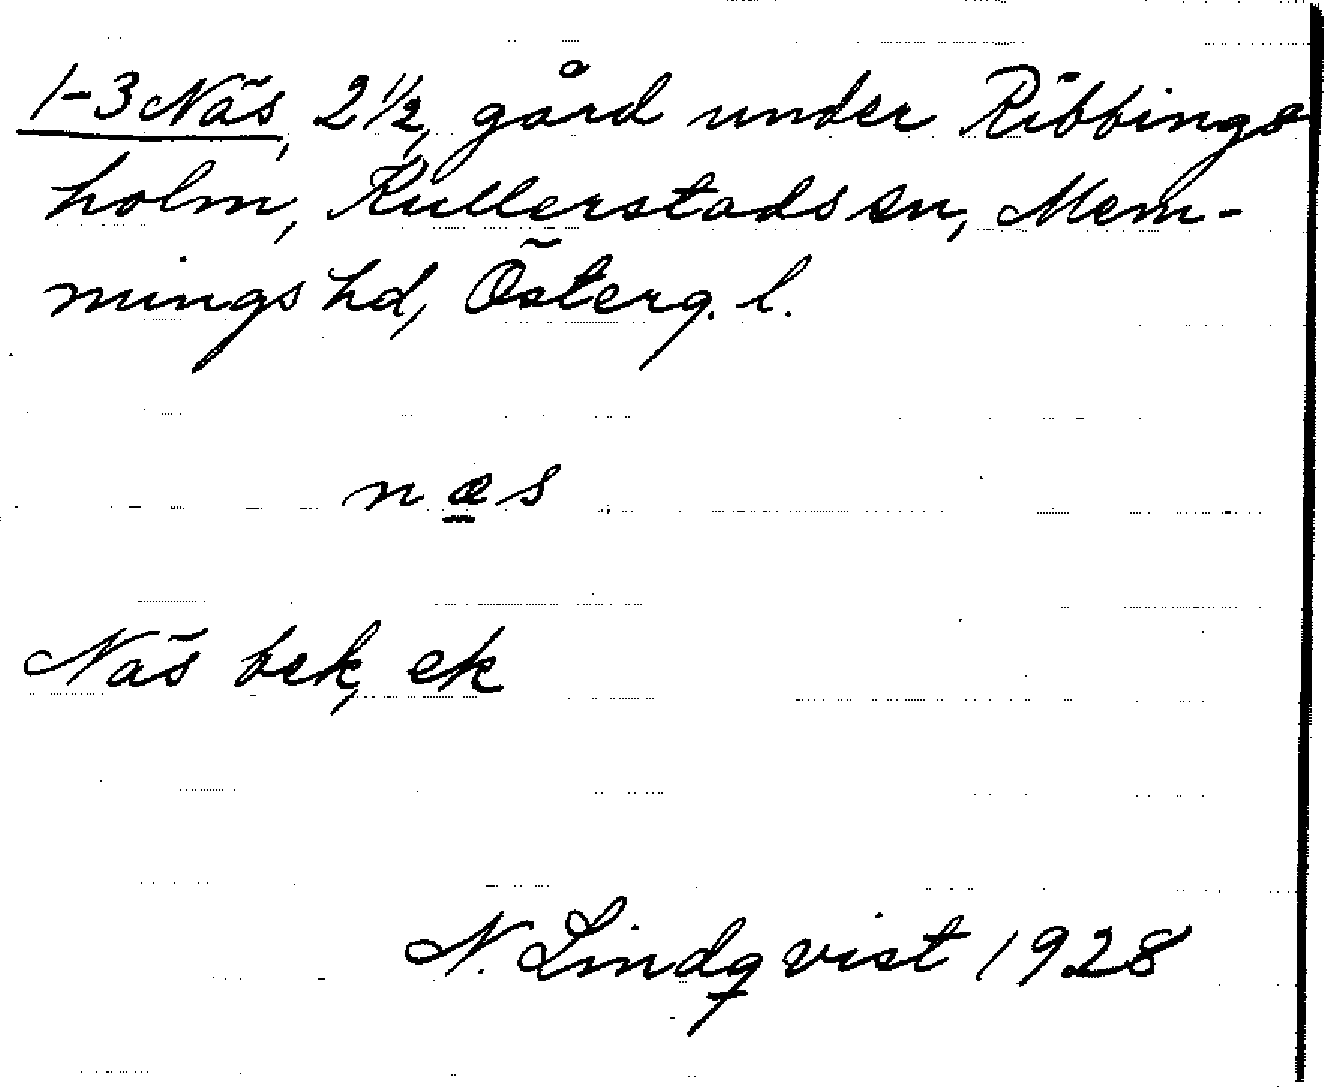 1-3 Näs, 2 1/2, gård under Ribbings
holm, Kullerstads sn, Mem-
mings hd, Österg. l.
næs
Näs bek, ek
N. Lindqvist 1928